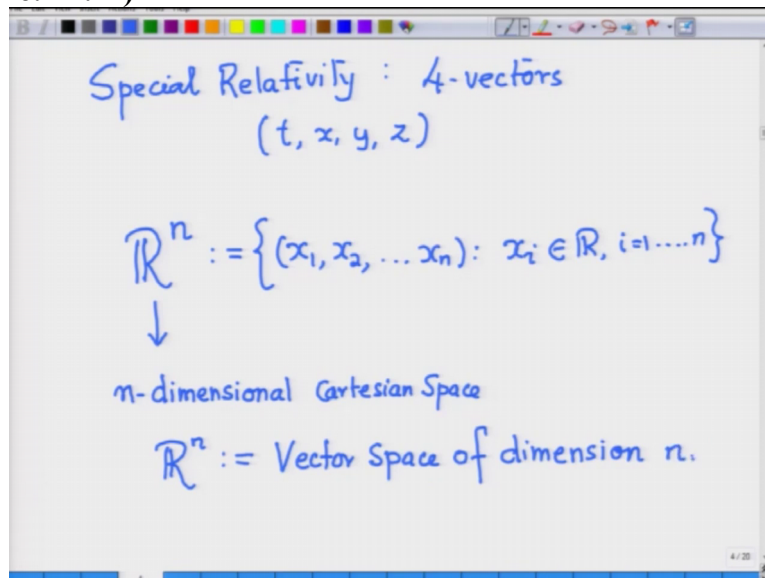 Special Relativity : 4-vectors
(t, x, y, z)
ℝⁿ := {(x₁, x₂, ... xₙ): xᵢ ∈ ℝ, i=1....n}
↓
n-dimensional Cartesian Space
ℝⁿ := Vector Space of dimension n.
4/20